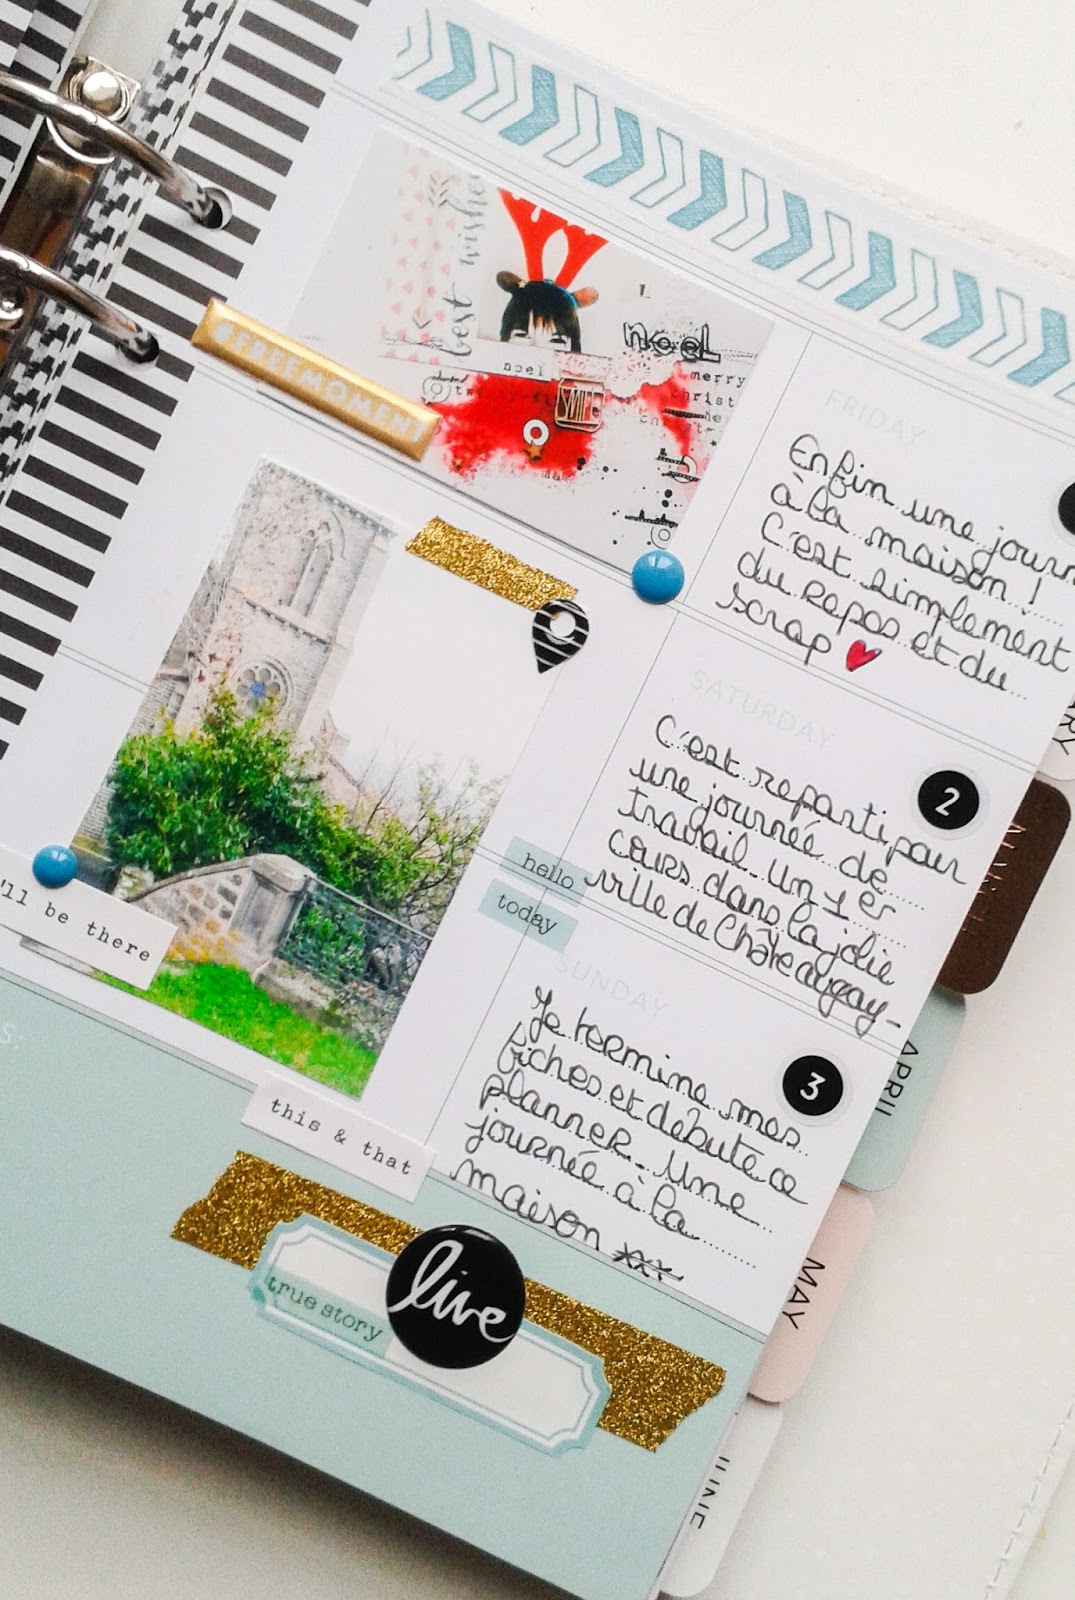 best wishes
NOEL
noel
merry
twenty-fi
SMILE
#FREEMOMENT
FRIDAY
Enfin une journ
à la maison !
C'est simplement
du repos et du
scrap
SATURDAY
2
C'est reparti pour
une journée de
travail. Un 1er
cours dans la jolie
ville de Châteaugay
hello
today
SUNDAY
3
Je termine mes
fiches et débute ce
planner. Une
journée à la
maison xxx
'll be there
this & that
S:
live
true story
RY
MARCH
APRIL
MAY
JUNE